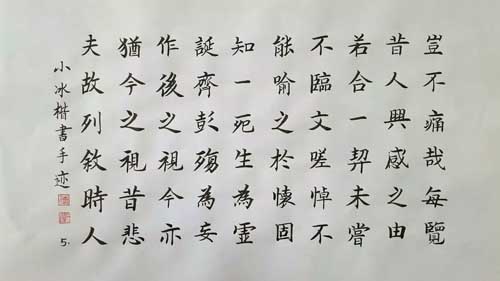 豈不痛哉每覽
昔人興感之由
若合一契未嘗
不臨文嗟悼不
能喻之於懷固
知一死生為虛
誕齊彭殤為妄
作後之視今亦
猶今之視昔悲
夫故列敘時人
小冰楷書手迹
5.